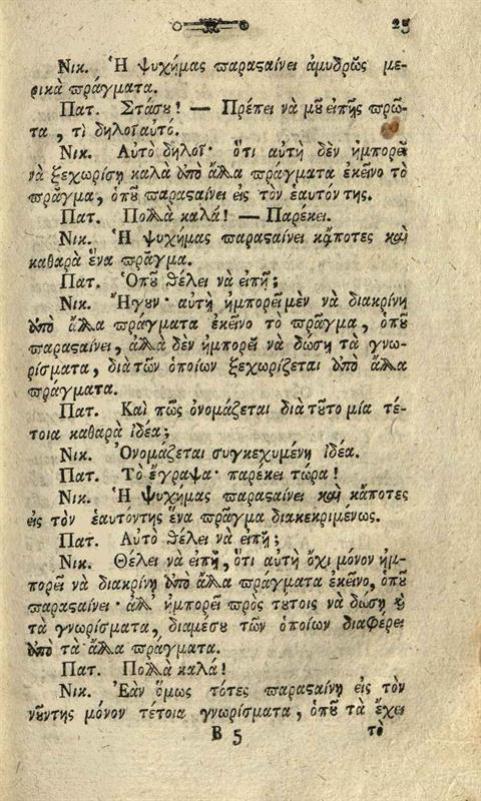 25
Νικ. Ἡ ψυχήμας παραϛαίνει ἀμυδρῶς με-
ρικὰ πράγματα.
Πατ. Στάσȣ! — Πρέπει νὰ μȣ͂ εἰπῇς πρῶ-
τα, τὶ δηλοῖ αυτό.
Νικ. Αὐτὸ δηλοῖ· ὅτι αὐτὴ δὲν ἠμπορεῖ
νὰ ξεχωρίσῃ καλὰ ἀπὸ ἄλλα πράγματα ἐκεῖνο τὸ
πρᾶγμα, ὁπȣ͂ παραϛαίνει εἰς τὸν ἑαυτόν της.
Πατ. Πολλὰ καλά! — Παρέκει.
Νικ. Ἡ ψυχήμας παραϛαίνει κᾄποτες καὶ
καθαρὰ ἕνα πρᾶγμα.
Πατ. Ὁπȣ͂ θέλει νὰ εἰπῇ;
Νικ. Ἤγȣν· αὐτὴ ἠμπορεῖ μὲν νὰ διακρίνῃ
ἀπὸ ἄλλα πράγματα ἐκεῖνο τὸ πρᾶγμα, ὁπȣ͂
παραϛαίνει, ἀλλὰ δὲν ἠμπορεῖ νὰ δώσῃ τὰ γνω-
ρίσματα, διὰ τῶν ὁποίων ξεχωρίζεται ἀπὸ ἄλλα
πράγματα.
Πατ. Καὶ πῶς ὀνομάζεται διὰ τȣ͂το μία τέ-
τοια καθαρὰ ἰδέα;
Νικ. Ὀνομάζεται συγκεχυμένη ἰδέα.
Πατ. Τὸ ἔγραψα· παρέκει τώρα!
Νικ. Ἡ ψυχήμας παραϛαίνει καὶ κᾄποτες
εἰς τὸν ἑαυτόντης ἕνα πρᾶγμα διακεκριμένως.
Πατ. Αὐτὸ θέλει νὰ εἰπῇ;
Νικ. Θέλει νὰ εἰπῇ, ὅτι αὐτὴ ὄχι μόνον ἠμ-
πορεῖ νὰ διακρίνῃ ἀπὸ ἄλλα πράγματα ἐκεῖνο, ὁπȣ͂
παραϛαίνει· ἀλλ' ἠμπορεῖ πρὸς τȣ́τοις νὰ δώσῃ ϗ̀
τὰ γνωρίσματα, διαμέσȣ τῶν ὁποίων διαφέρει
ἀπὸ τὰ ἄλλα πράγματα.
Πατ. Πολλὰ καλά!
Νικ. Ἐὰν ὅμως τότες παραϛαίνῃ εἰς τὸν
νȣ͂ντης μόνον τέτοια γνωρίσματα, ὁπȣ͂ τὰ ἔχει
B 5 τὸ